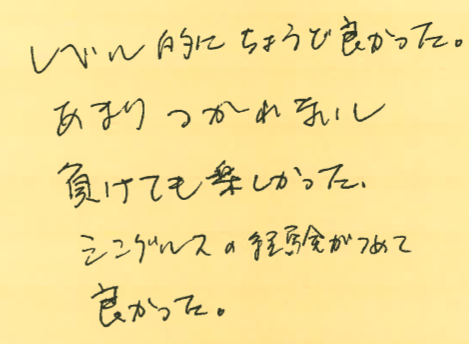 レベル的にちょうど良かった。
あまりつかれないし
負けても楽しかった、
シングルスの経験がつめて
良かった。